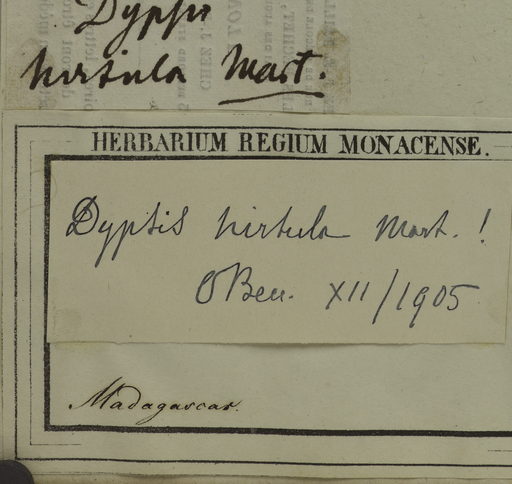 Dypsis
hirtula Mart.
HERBARIUM REGIUM MONACENSE.
Dypsis hirtula Mart. !
OBecc. XII/1905
Madagascar.